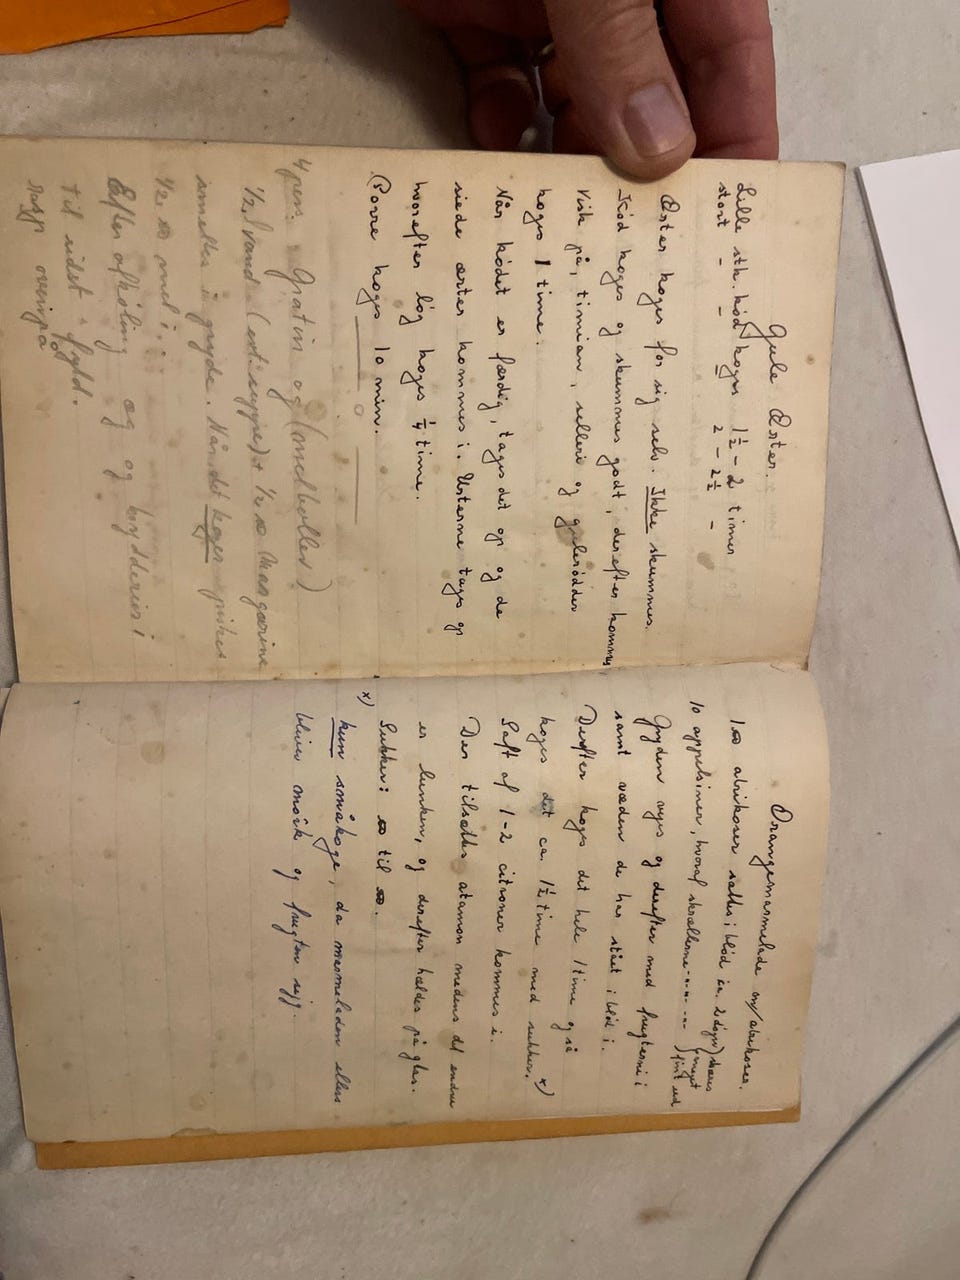 Gule Ærter.
Lille stk. kød koges 1½ - 2 timer
stort - - - 2 - 2½ -
Ærter koges for sig selv. Ikke skummes.
Kød koges og skummes godt, derefter kommes
visk på, timian, selleri og gulerødder
koges 1 time.
Når kødet er færdig, tages det op og de
siede ærter kommes i. Urterne tages op
hvorefter løg koges ¼ time.
(Porre koges 10 min.
4 pers. Gratin og (melboller)
½ l vand (evt. suppe) + ½ ℔ Margarine
smeltes i gryde. Når det koger piskes
½ ℔ mel i.
Efter afkøling æg og krydderier i
til sidst fyld.
rasp ovenpå
Orangemarmelade m/ abrikoser.
1 ℔ abrikoser sættes i blød ca. 2 døgn) skæres
10 appelsiner, hvoraf skrællerne -"-"-"- ) meget fint ud
Gryden vejes og derefter med frugterne i
samt væden de har stået i blød i.
Derefter koges det hele 1 time og så
koges det ca. 1½ time med sukker. x)
Saft af 1-2 citroner kommes i.
Der tilsættes atamon medens det endnu
er lunken, og derefter hældes på glas.
Sukker: ℔ til ℔.
x) kun småkoge, da marmeladen ellers
bliver mørk og frugten sejg.